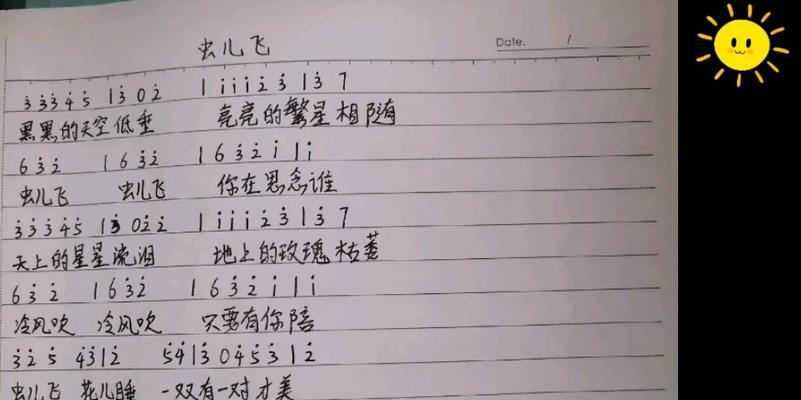 虫儿飞
Date. /
3̇3̇3̇4̇5̇ 13̇02̇ 1 i i i 2̇ 3̇ 1 3̇ 7
黑黑的天空低垂 亮亮的繁星相随
63̇2̇ 163̇2̇ 163̇2̇ i 1 i
虫儿飞 虫儿飞 你在思念谁
3̇3̇3̇4̇5̇ 13̇02̇2̇ 1 i i i 2̇ 3̇ 1 3̇ 7
天上的星星流泪 地上的玫瑰枯萎
63̇2̇ 163̇2̇ 163̇2̇ i 1 i
冷风吹 冷风吹 只要有你陪
3̇2̇5̇ 4̇3̇12̇ 5̇4̇13̇04̇5̇3̇12̇
虫儿飞 花儿睡 一双有一对才美